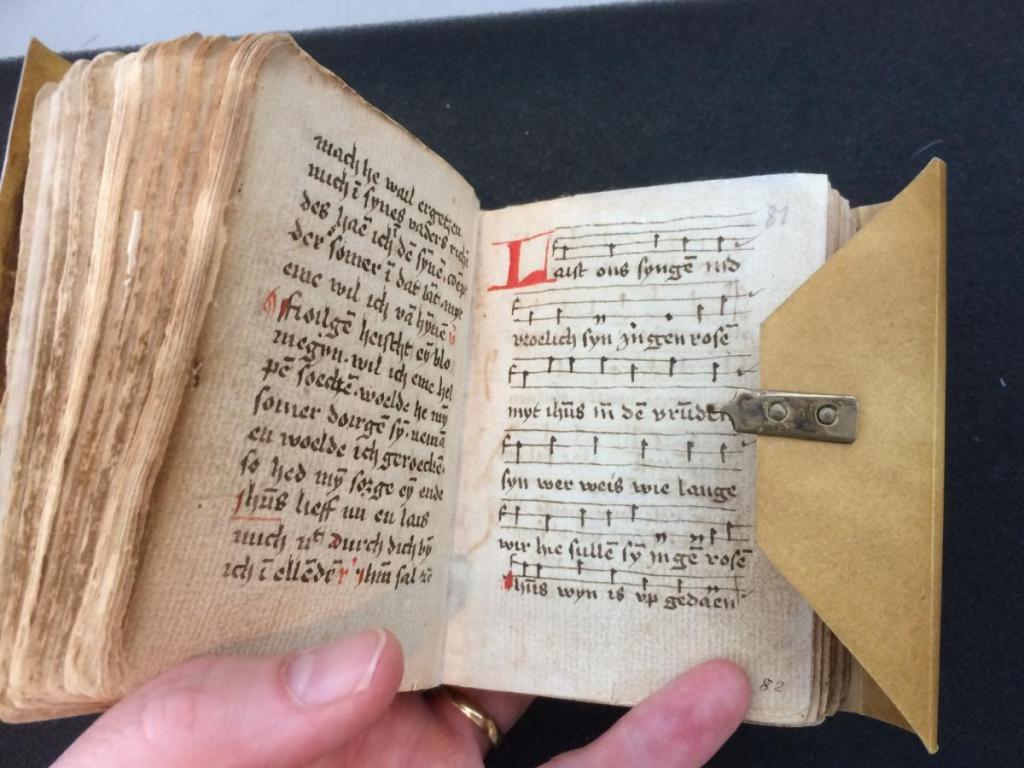 mach he wail ergetzen
mich ī synes vaders rich
des haē ich dē synē
der somer ī dat lāt
eme wil ich vā hynē
ffiolgē heischt eȳ blo
megyn wil ich eme hel
pē soeckē woelde he mȳ
somer doirgē sȳ
en woelde ich geroeckē
so hed mȳ sorge eȳ ende
Jhūs lieff nu en lais
mich durch dich bȳ
ich ī ellēdē ihm sal
81
Laist ons syngē ind
vroelich syn yn gen rosē
myt ihūs in dē vrūdē
syn wer weis wie lange
wir hie sullē sȳ yn gē rosē
Jhūs wyn is vp gedaen
82